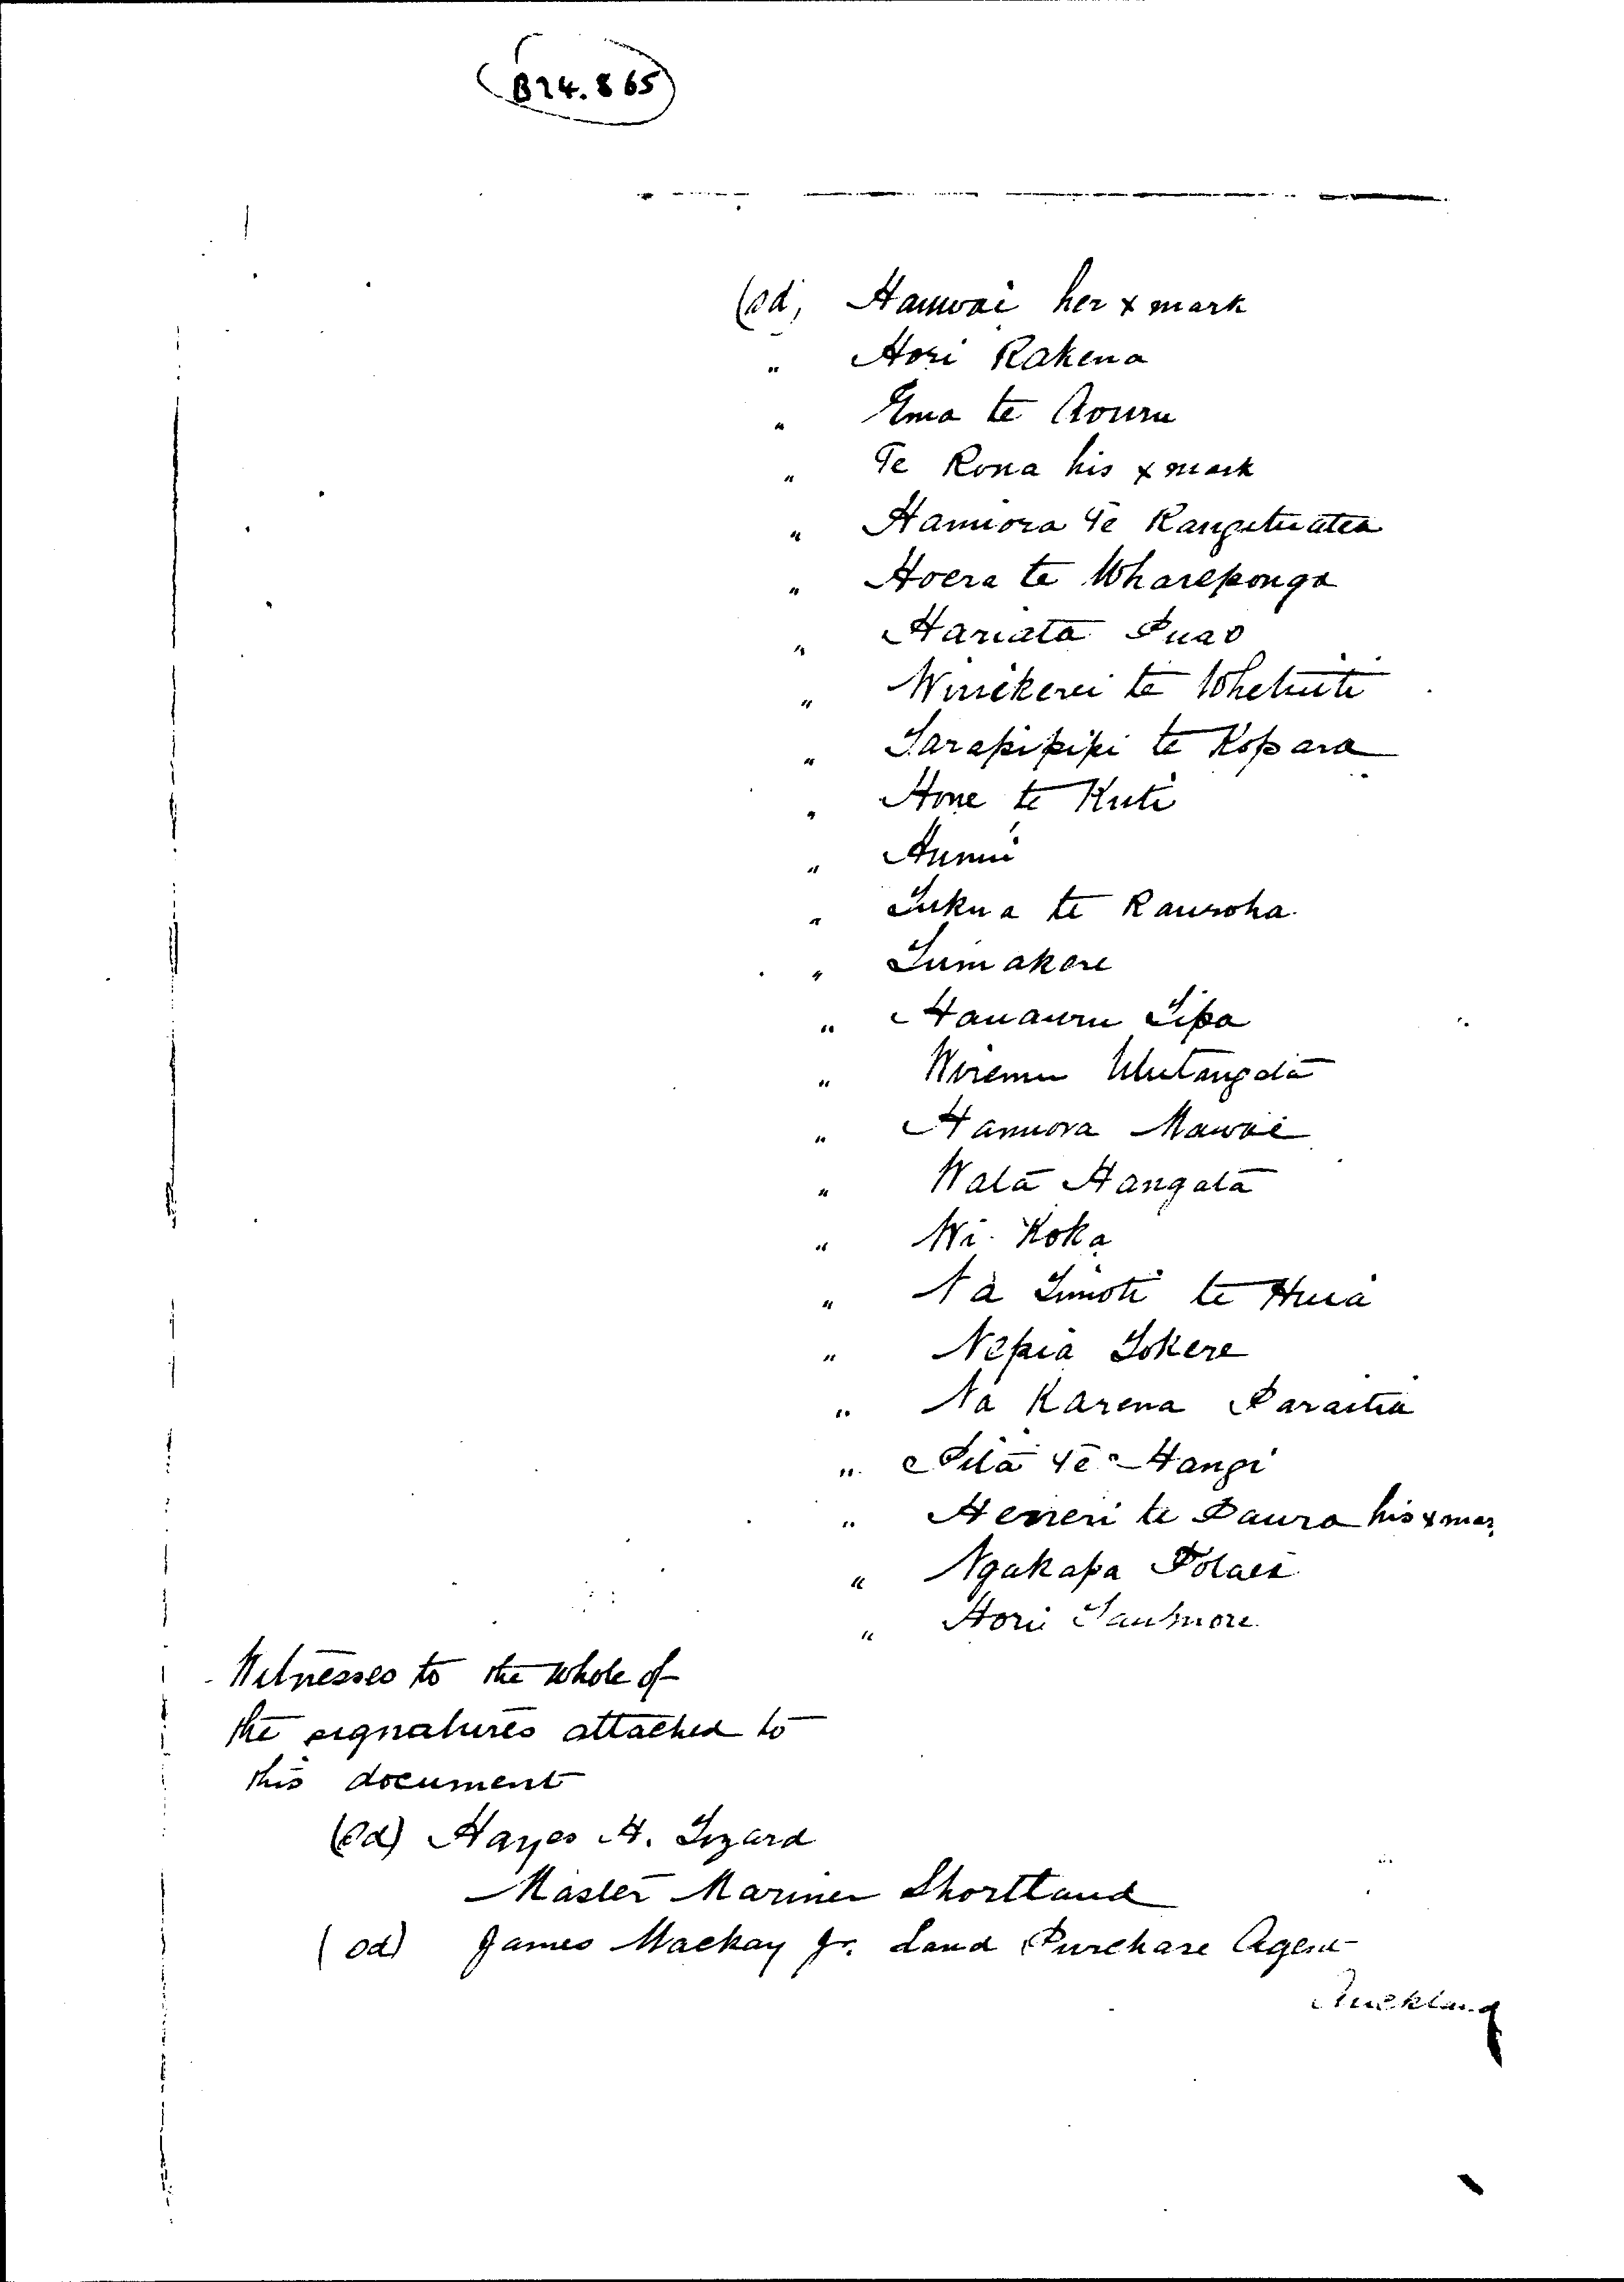 B24.865
(sd) Hamwai her x mark
" Hori Rakena
" Ema te Aouru
" Te Rona his x mark
" Hamiora Te Rangituatea
" Hoera te Whareponga
" Hariata Puao
" Winikerei te Whetuiti
" Tarapipipi te Kopara
" Hone te Kuti
" Hunui
" Tukua te Rauroha
" Tumakere
" Hauauru Tipa
" Wiremu
" Hamiora Mawai
" Wata Hangata
" Wi Koka
" Na Timoti te Huia
" Nepia Tokere
" Na Karena Paraitia
" Pita Te Hangi
" Heneri te Paura his x mar
" Ngakapa Potaei
" Hori
Witnesses to the whole of
the signatures attached to
this document
(sd) Hayes H. Tizard
Master Mariner Shortland
(sd) James Mackay Jr. Land Purchase Agent
Auckland